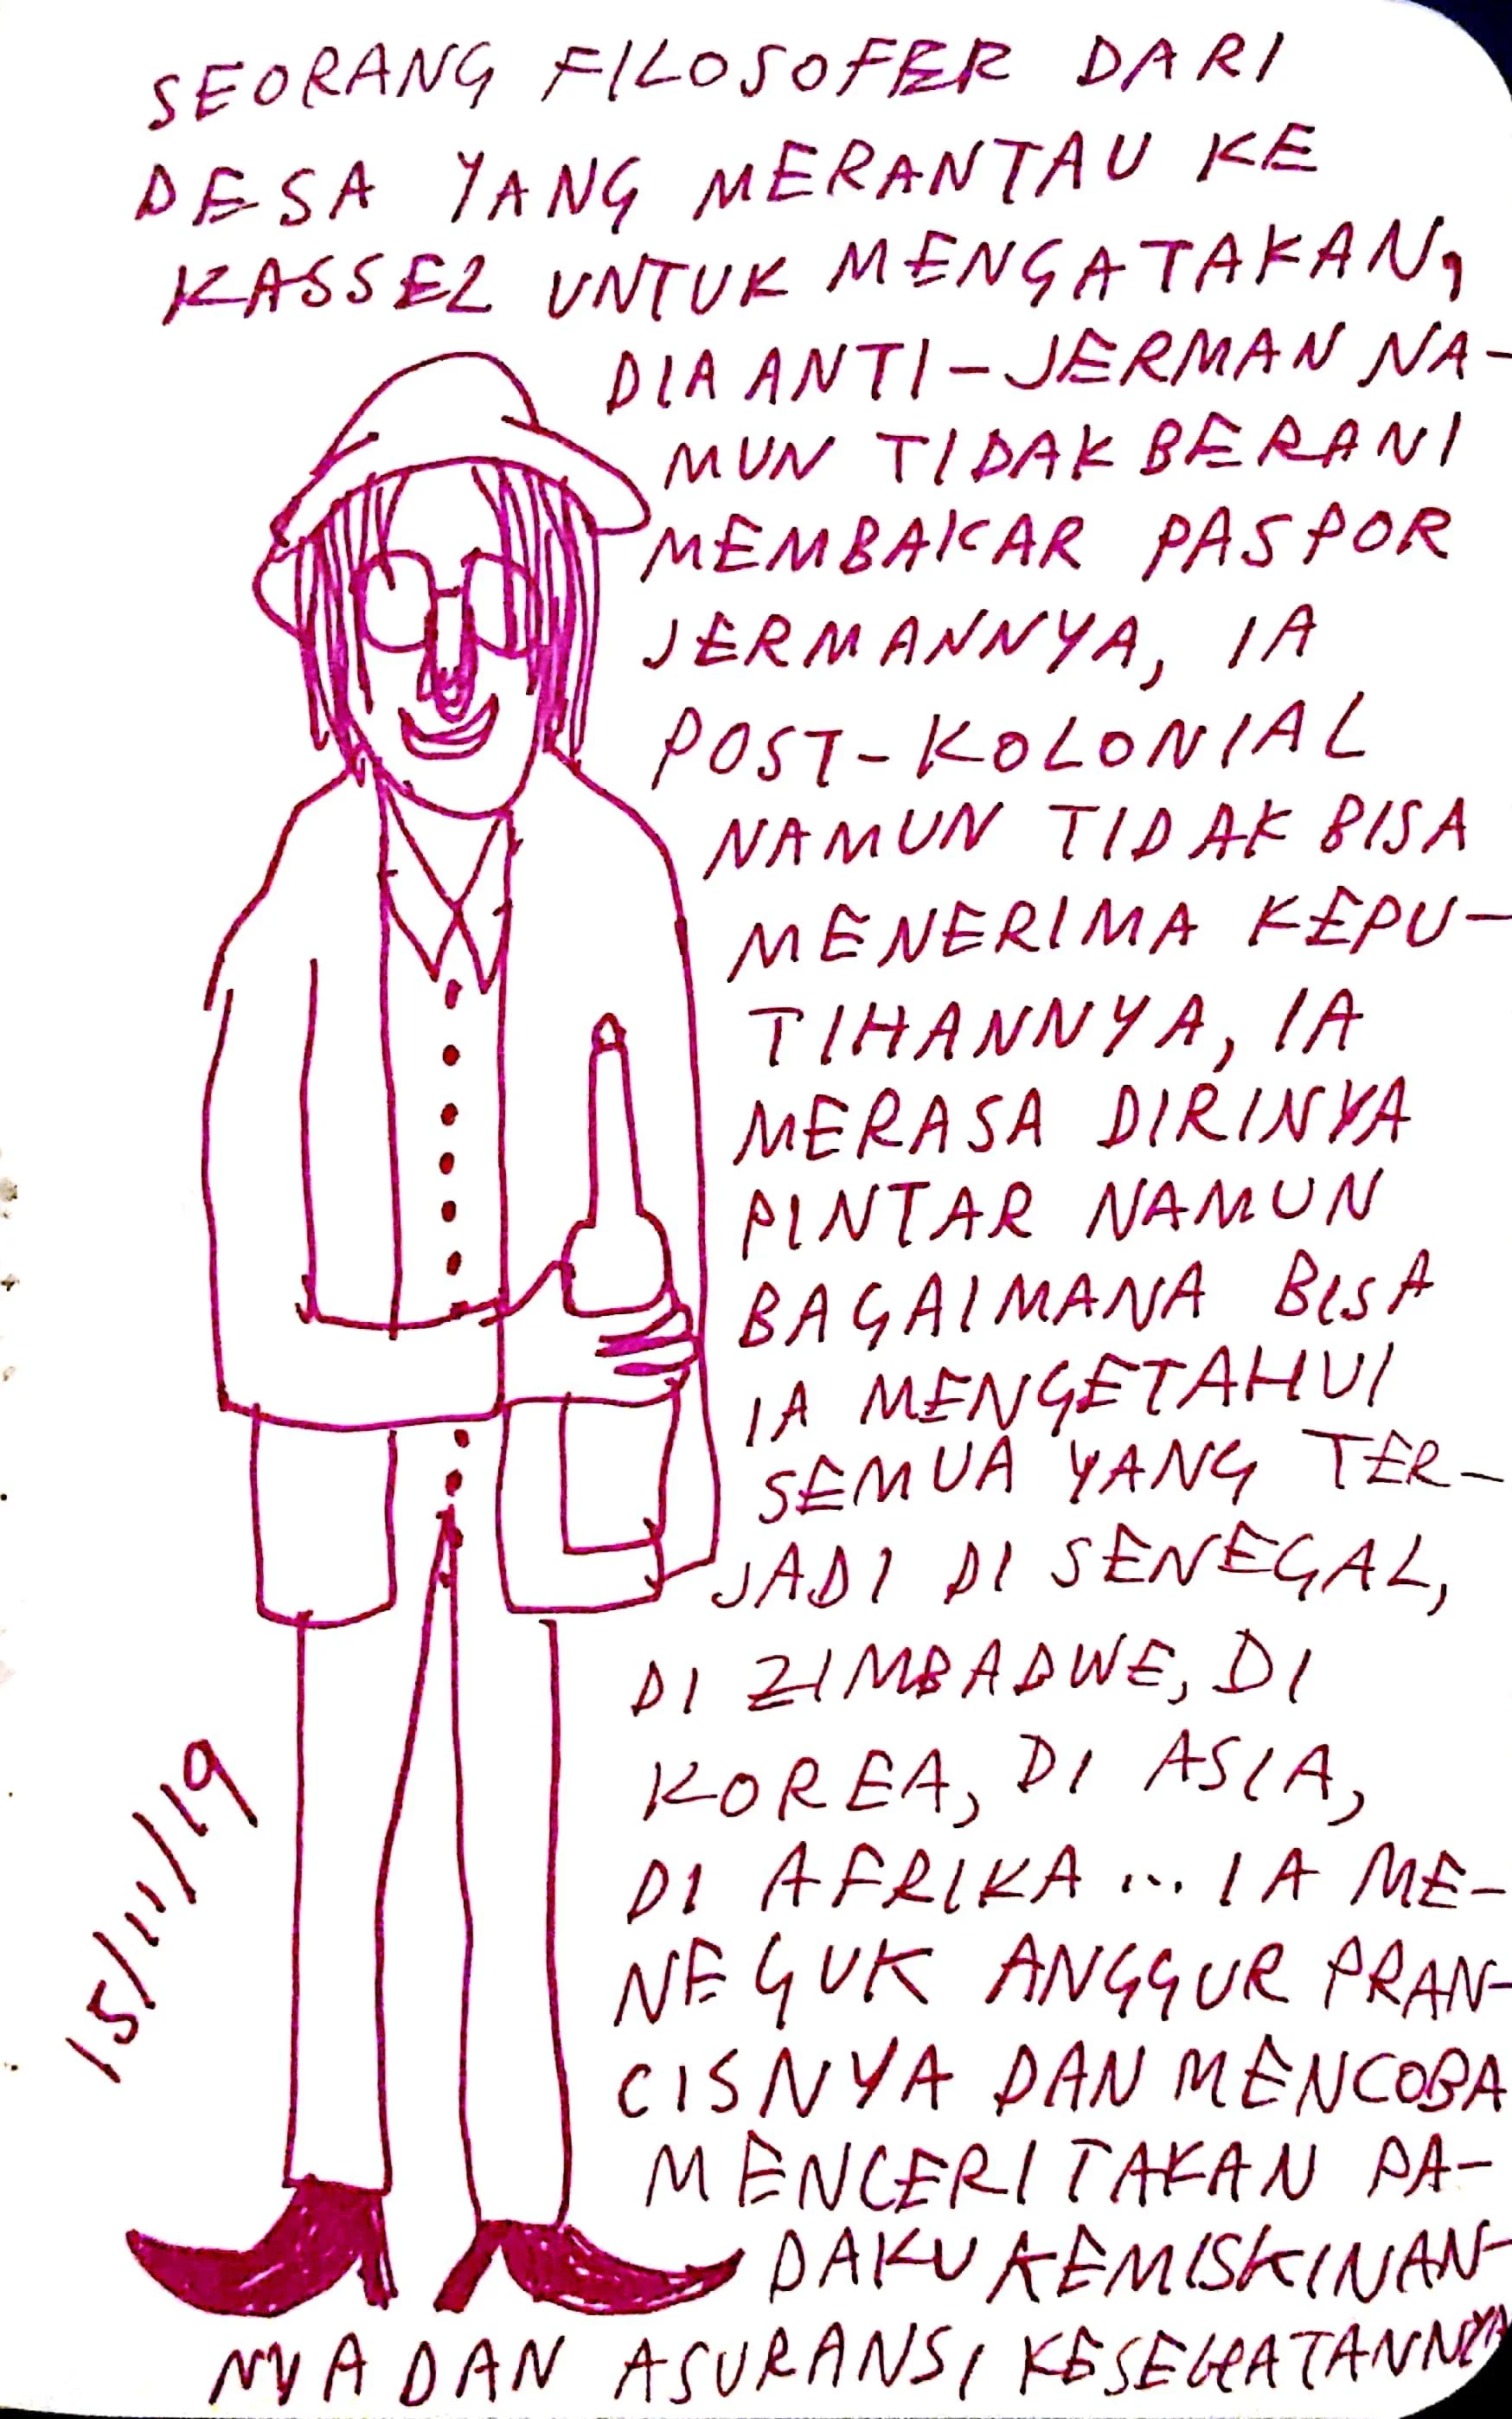 SEORANG FILOSOFER DARI
DESA YANG MERANTAU KE
KASSEL UNTUK MENGATAKAN,
DIA ANTI-JERMAN NA-
MUN TIDAK BERANI
MEMBAKAR PASPOR
JERMANNYA, IA
POST-KOLONIAL
NAMUN TIDAK BISA
MENERIMA KEPU-
TIHANNYA, IA
MERASA DIRINYA
PINTAR NAMUN
BAGAIMANA BISA
IA MENGETAHUI
SEMUA YANG TER-
JADI DI SENEGAL,
DI ZIMBABWE, DI
KOREA, DI ASIA,
DI AFRIKA... IA ME-
NEGUK ANGGUR PRAN-
CISNYA DAN MENCOBA
MENCERITAKAN PA-
DAKU KEMISKINAN-
NYA DAN ASURANSI KESEHATANNYA
15/11/19